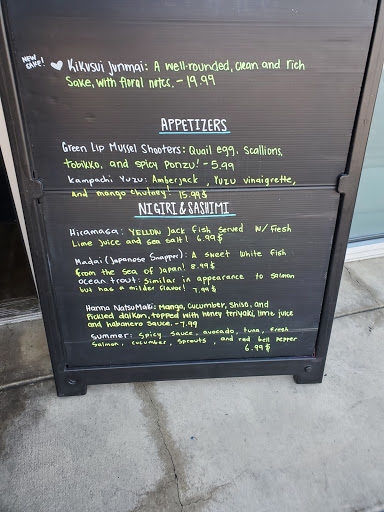 NEW SAKE!
Kikusui Junmai: A well-rounded, clean and rich
Sake, with floral notes. - 19.99
APPETIZERS
Green Lip Mussel Shooters: Quail egg, Scallions,
tobikko, and spicy Ponzu! - 5.99
Kampachi Yuzu: Amberjack, Yuzu vinaigrette,
and mango chutney! 15.99$
NIGIRI & SASHIMI
Hiramasa: YELLOW Jack fish served w/ fresh
Lime juice and sea salt! 6.99$
Madai (Japanese Snapper): A sweet white fish
from the sea of Japan! 8.99$
ocean trout: Similar in appearance to salmon
but has a milder flavor! 7.99$
Hanna NatsuMaki: Mango, cucumber, shiso, and
Pickled daikon, topped with honey teriyaki, lime juice
and habanero sauce. - 7.99
summer: Spicy sauce, avocado, tuna, fresh
Salmon, cucumber, sprouts, and red bell pepper
6.99$